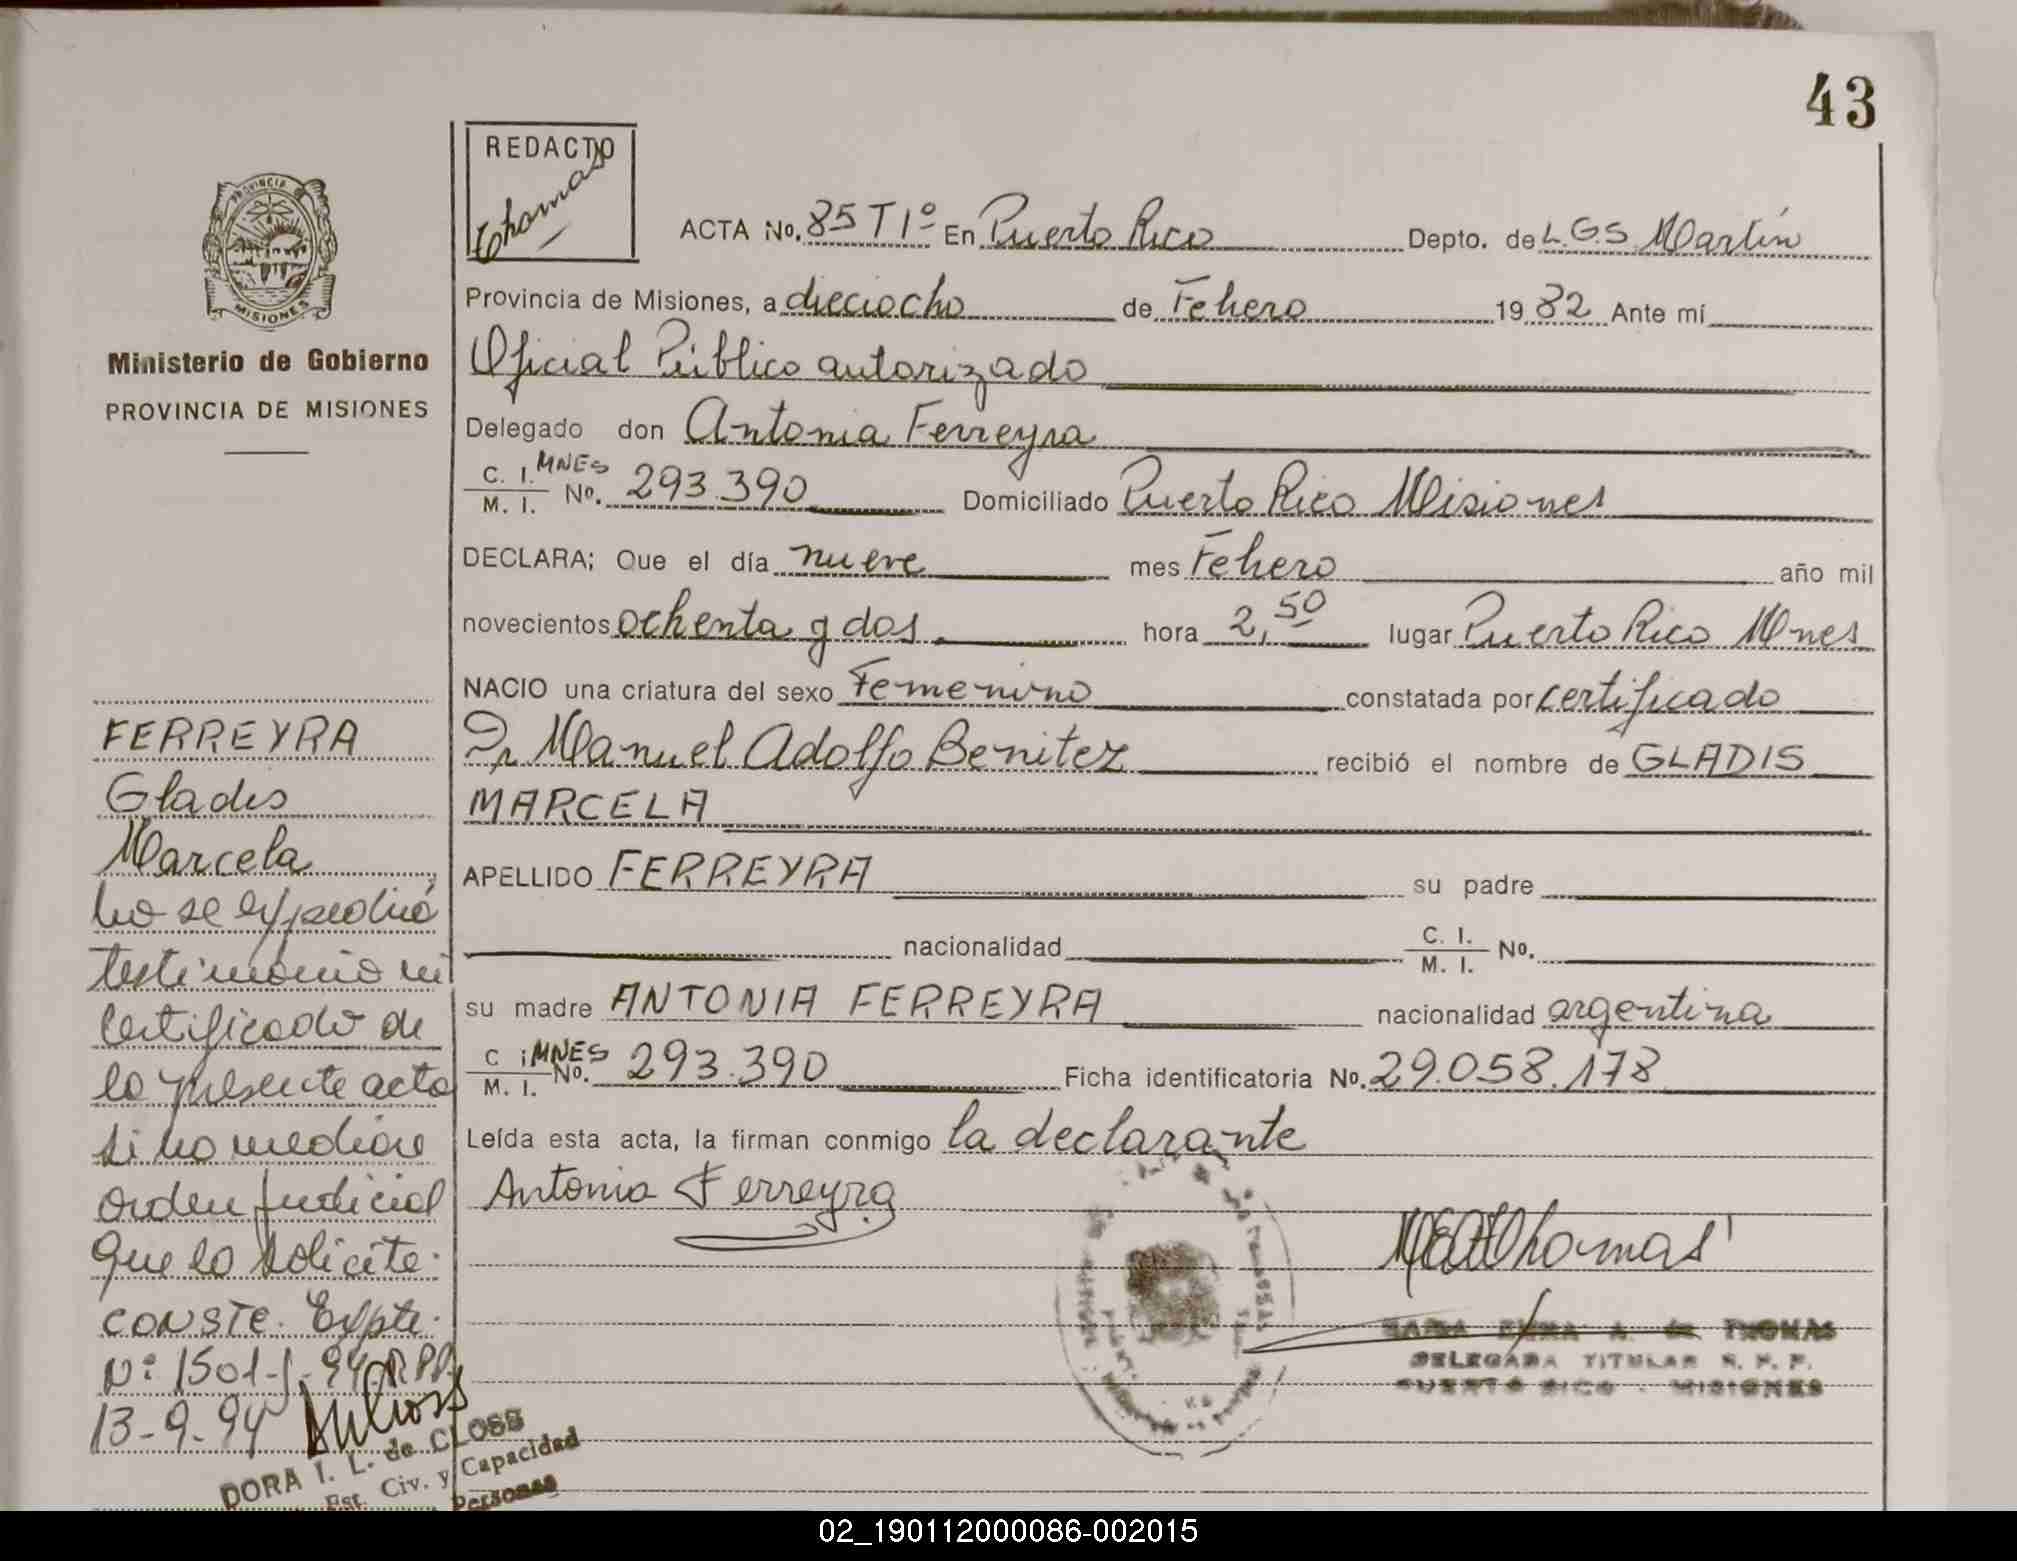 43
REDACTO
Thomas
PROVINCIA
MISIONES
Ministerio de Gobierno
PROVINCIA DE MISIONES
ACTA No. 85 T 1º En Puerto Rico Depto. de L.G.S. Martín
Provincia de Misiones, a dieciocho de Febrero 1982 Ante mí
Oficial Público autorizado
Delegado don Antonia Ferreyra
C. I. MNES
M. I. No. 293.390 Domiciliado Puerto Rico Misiones
DECLARA; Que el día nueve mes Febrero año mil
novecientos ochenta y dos hora 2,50 lugar Puerto Rico Mnes
NACIO una criatura del sexo Femenino constatada por certificado
Dr Manuel Adolfo Benitez recibió el nombre de GLADIS
MARCELA
APELLIDO FERREYRA su padre
nacionalidad C. I. M. I. No.
su madre ANTONIA FERREYRA nacionalidad argentina
C i MNES
M. I. No. 293.390 Ficha identificatoria No. 29.058.178
Leída esta acta, la firman conmigo la declarante
Antonia Ferreyra
MEAThomas
MARIA EMMA A. de THOMAS
DELEGADA TITULAR R. P. P.
PUERTO RICO - MISIONES
FERREYRA
Gladis
Marcela
No se expedirá
testimonio ni
certificado de
la presente acta
si no mediare
orden judicial
que lo solicite.
CONSTE. Expte.
Nº 1501-J-94 RPP.
13-9-94
DORA I. L. de CLOSS
Est. Civ. y Capacidad
Personas
02_190112000086-002015